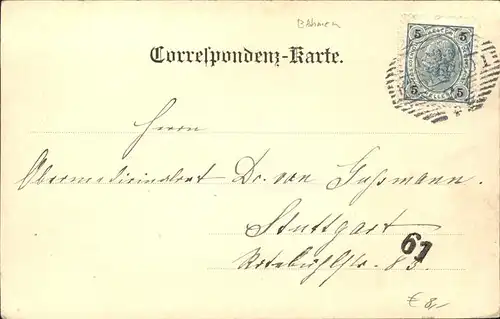 Böhmen
Correspondenz-Karte.
5 5
5 5
Herrn
Obermedicinalrat Dr. von Gußmann.
Stuttgart
Rotebühlstr. 83.
61
€ 8,-